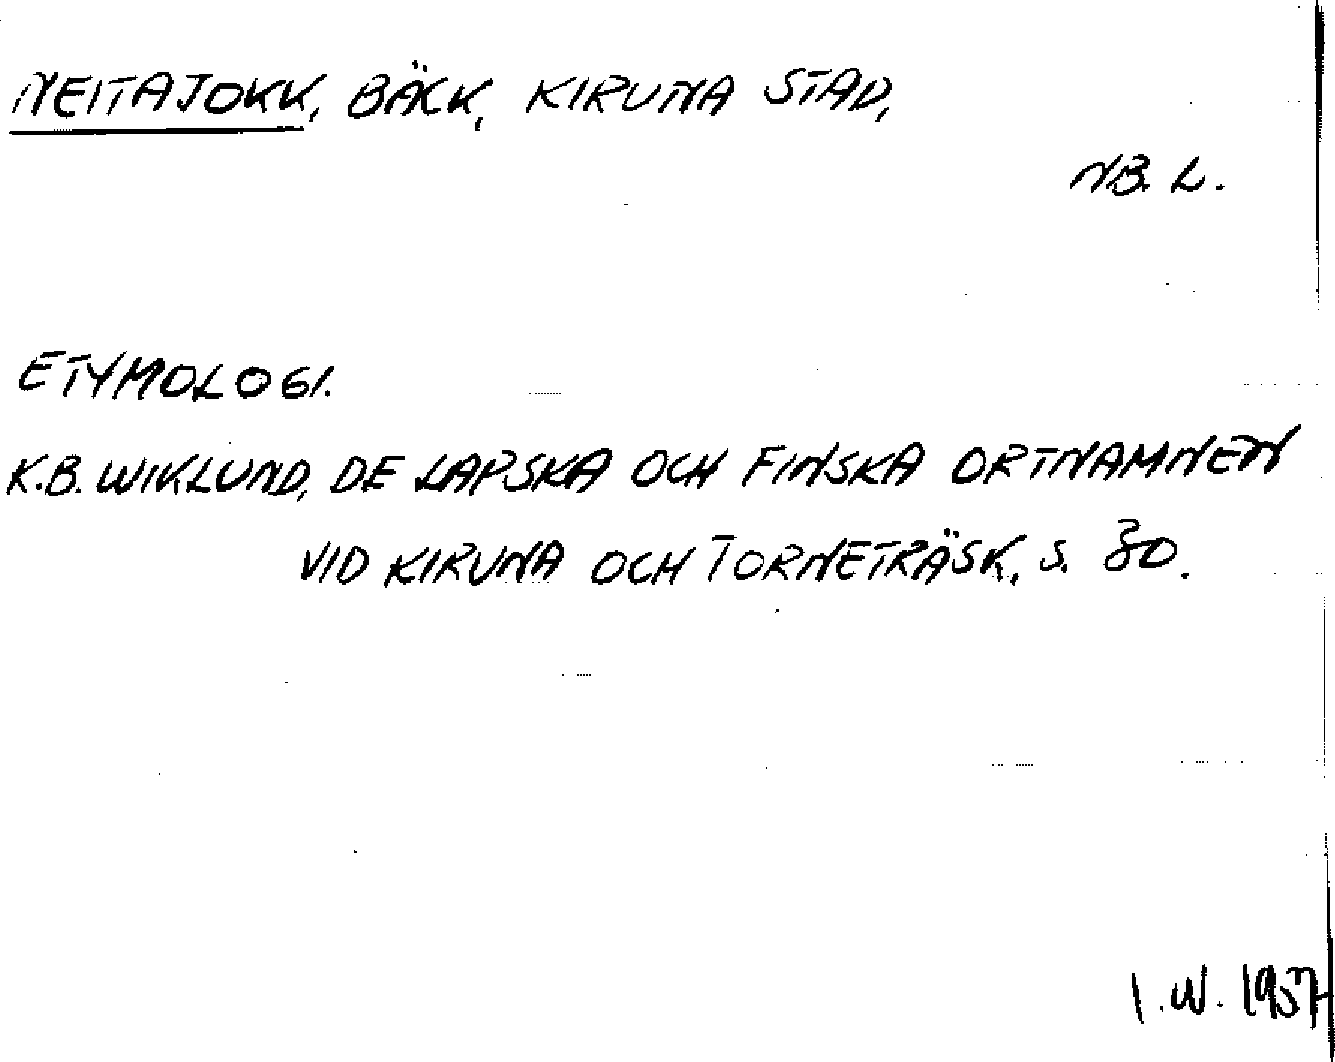 NEITAJOKK, BÄCK, KIRUNA STAD,
NB. L.
ETYMOLOGI.
K.B. WIKLUND, DE LAPSKA OCH FINSKA ORTNAMNEN
VID KIRUNA OCH TORNETRÄSK, S. 80.
I. W. 1957